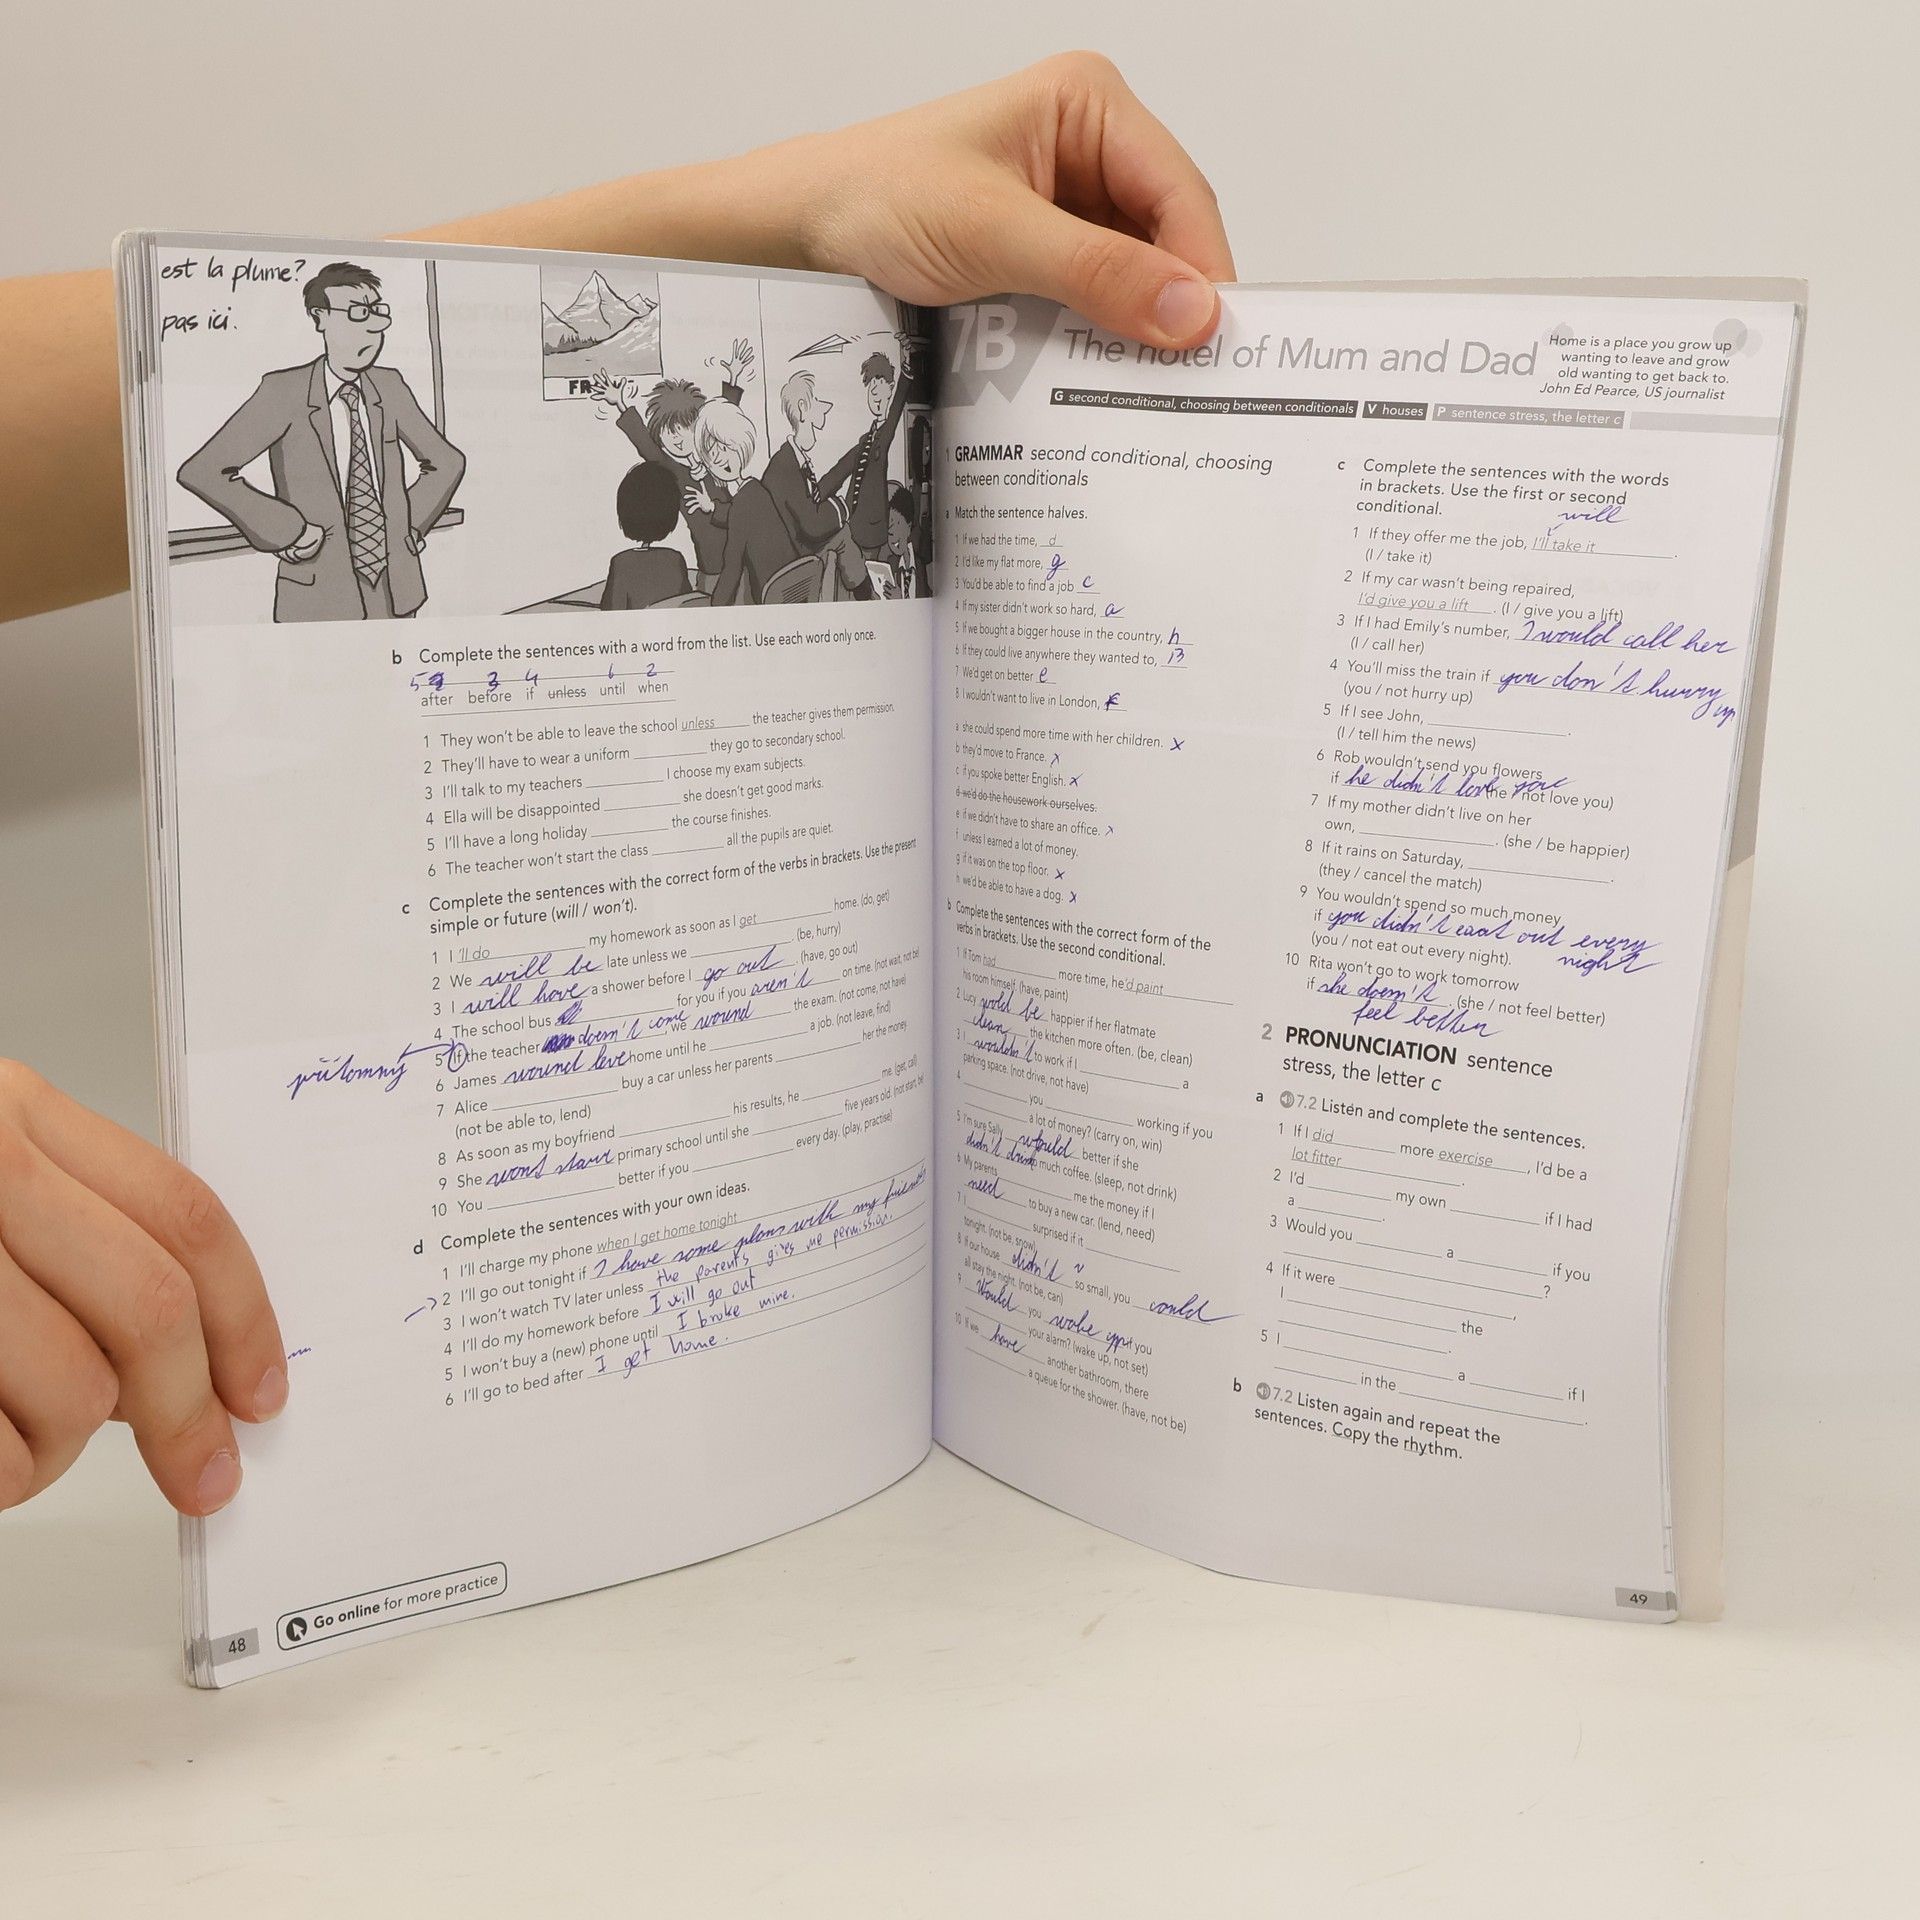 est la plume?
pas ici.
b Complete the sentences with a word from the list. Use each word only once.
5 3 4 6 2
after before if unless until when
1 They won't be able to leave the school unless the teacher gives them permission.
2 They'll have to wear a uniform ________ they go to secondary school.
3 I'll talk to my teachers ________ I choose my exam subjects.
4 Ella will be disappointed ________ she doesn't get good marks.
5 I'll have a long holiday ________ the course finishes.
6 The teacher won't start the class ________ all the pupils are quiet.
c Complete the sentences with the correct form of the verbs in brackets. Use the present
simple or future (will / won't).
1 I 'll do my homework as soon as I get home. (do, get)
2 We will be late unless we ________. (be, hurry)
3 I will have a shower before I go out. (have, go out)
4 The school bus ________ for you if you aren't on time. (not wait, not be)
5 If the teacher doesn't come, we wound the exam. (not come, not have)
přítomný
6 James wound leve home until he ________ a job. (not leave, find)
7 Alice ________ buy a car unless her parents ________ her the money.
(not be able to, lend)
8 As soon as my boyfriend ________ his results, he ________ me. (get, call)
9 She wont start primary school until she ________ five years old. (not start, be)
10 You ________ better if you ________ every day. (play, practise)
d Complete the sentences with your own ideas.
1 I'll charge my phone when I get home tonight
2 I'll go out tonight if I have some plans with my friends
3 I won't watch TV later unless the parents gives me permission.
4 I'll do my homework before I will go out
5 I won't buy a (new) phone until I broke mine.
6 I'll go to bed after I get home.
Go online for more practice
48
7B The hotel of Mum and Dad
Home is a place you grow up
wanting to leave and grow
old wanting to get back to.
John Ed Pearce, US journalist
G second conditional, choosing between conditionals V houses P sentence stress, the letter c
1 GRAMMAR second conditional, choosing
between conditionals
a Match the sentence halves.
1 If we had the time, d
2 I'd like my flat more, g
3 You'd be able to find a job c
4 If my sister didn't work so hard, a
5 If we bought a bigger house in the country, h
6 If they could live anywhere they wanted to, B
7 We'd get on better e
8 I wouldn't want to live in London, f
a she could spend more time with her children. x
b they'd move to France. x
c if you spoke better English. x
d we'd do the housework ourselves.
e if we didn't have to share an office. x
f unless I earned a lot of money.
g if it was on the top floor. x
h we'd be able to have a dog. x
b Complete the sentences with the correct form of the
verbs in brackets. Use the second conditional.
1 If Tom had more time, he'd paint
his room himself. (have, paint)
2 Lucy wold be happier if her flatmate
clean the kitchen more often. (be, clean)
3 I wouldn't to work if I ________ a
parking space. (not drive, not have)
4 ________ you ________ working if you
________ a lot of money? (carry on, win)
5 I'm sure Sally would better if she
didn't drink much coffee. (sleep, not drink)
6 My parents ________ me the money if I
need to buy a new car. (lend, need)
7 I ________ surprised if it ________
tonight. (not be, snow)
8 If our house didn't so small, you could
all stay the night. (not be, can)
9 Would you wake up if you
________ your alarm? (wake up, not set)
10 If we have another bathroom, there
________ a queue for the shower. (have, not be)
c Complete the sentences with the words
in brackets. Use the first or second
conditional.
will
1 If they offer me the job, I'll take it.
(I / take it)
2 If my car wasn't being repaired,
I'd give you a lift. (I / give you a lift)
3 If I had Emily's number, I would call her
(I / call her)
4 You'll miss the train if you don't hurry
up
(you / not hurry up)
5 If I see John, ________.
(I / tell him the news)
6 Rob wouldn't send you flowers
if he didn't love you (he / not love you)
7 If my mother didn't live on her
own, ________. (she / be happier)
8 If it rains on Saturday, ________.
(they / cancel the match)
9 You wouldn't spend so much money
if you didn't eat out every
night
(you / not eat out every night).
10 Rita won't go to work tomorrow
if she doesn't. (she / not feel better)
feel better
2 PRONUNCIATION sentence
stress, the letter c
a 7.2 Listen and complete the sentences.
1 If I did more exercise, I'd be a
lot fitter.
2 I'd ________ my own ________ if I had
a ________.
3 Would you ________ a ________
________ if you
________?
4 If it were ________,
I ________ the
________.
5 I ________ a ________ if I
________ in the ________.
b 7.2 Listen again and repeat the
sentences. Copy the rhythm.
49